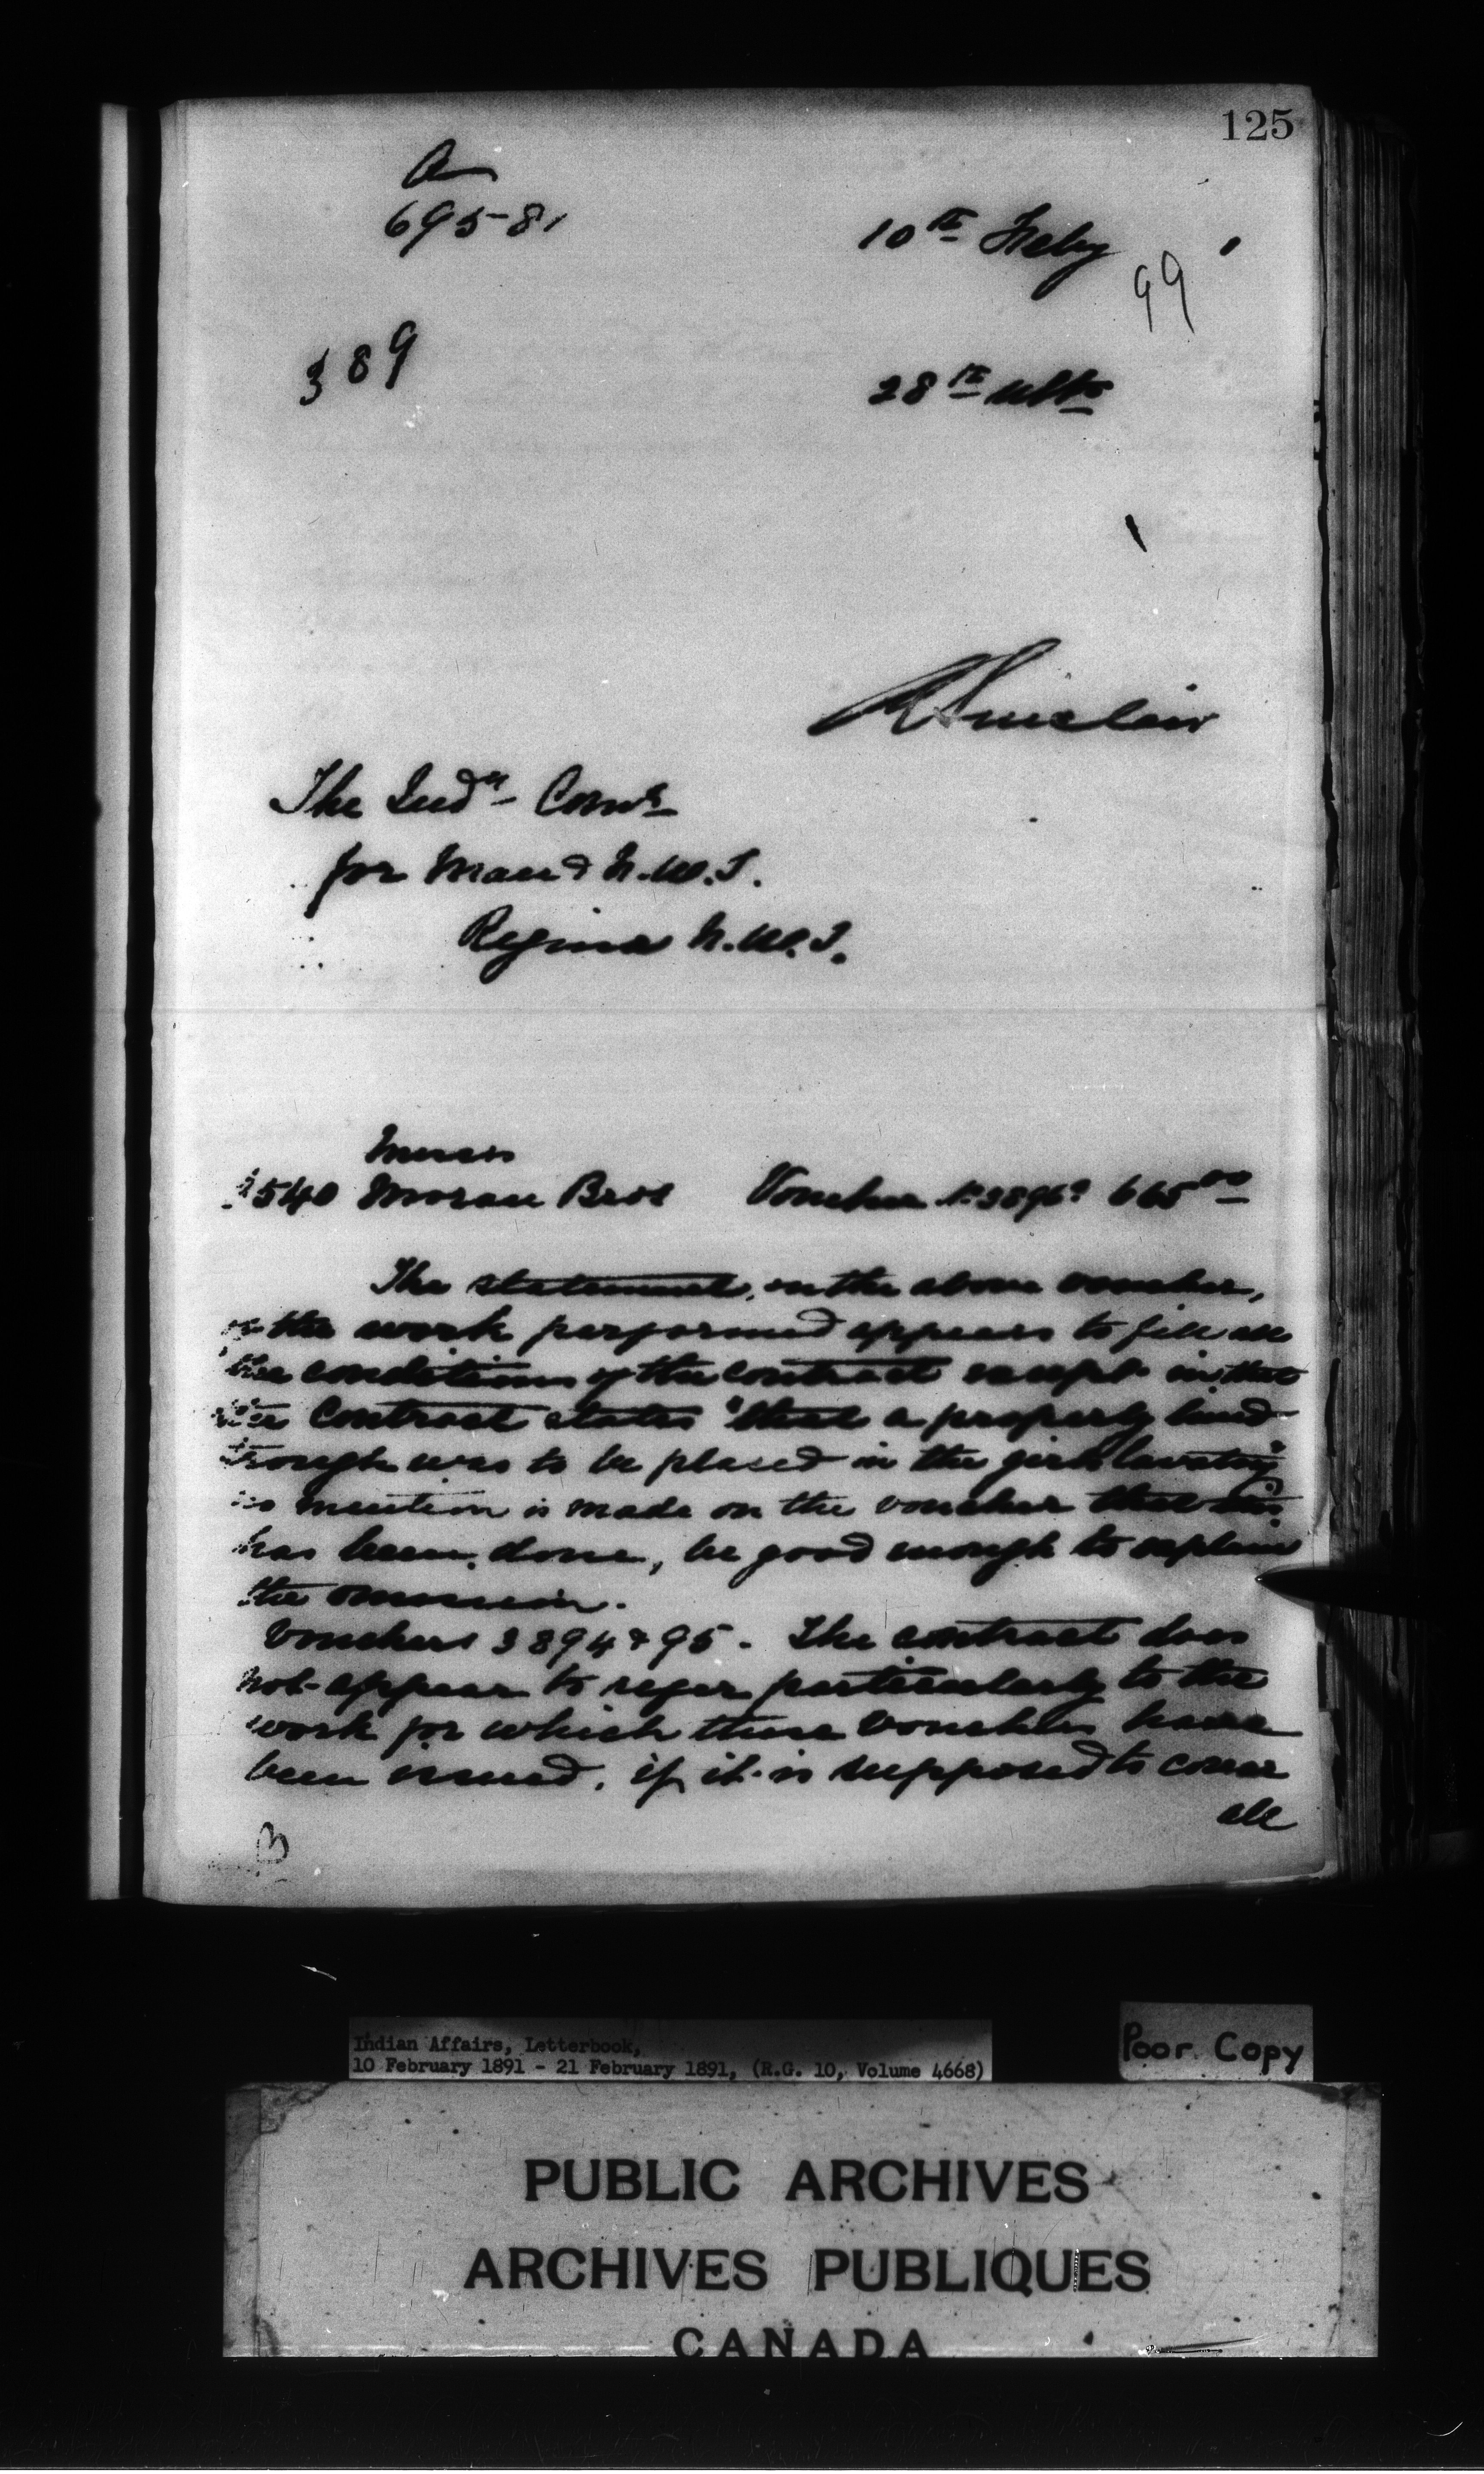 125
A
695-81
10th Feby
99
389
28th ulto
R Sinclair
The Indn Comr
for Man & N.W.T.
Regina N.W.T.
Messrs
540 Moran Bros Voucher No 3896 665 00
The statement, on the above voucher,
of the work performed appears to fill all
the conditions of the contract except in that
the contract states "that a properly lined
trough was to be placed in the girls lavatory"
no mention is made on the voucher that this
has been done, be good enough to explain
the omission.
Vouchers 3894 & 95. The contract does
not appear to refer particularly to the
work for which these vouchers have
been issued, if it is supposed to cover
all
B
Indian Affairs, Letterbook,
10 February 1891 - 21 February 1891, (R.G. 10, Volume 4668)
Poor Copy
PUBLIC ARCHIVES
ARCHIVES PUBLIQUES
CANADA